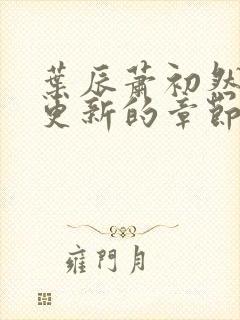 葉辰蕭初然
更新的章節
雍門月